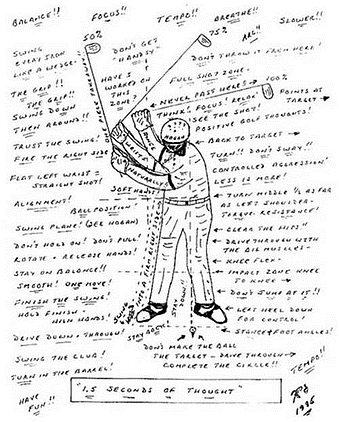 BALANCE!! FOCUS!! TEMPO!! BREATHE!! SLOWER!!
50% 75% ARC!!
SWING
EVERY IRON
LIKE A WEDGE.
DON'T GET
"HANDSY"
DON'T THROW IT FROM HERE!
HAVE I
WORKED ON
THIS
ZONE?
FULL SHOT ZONE.
100%
THE GRIP!!
THE GRIP!!
SWING DOWN
THEN AROUND!!
NEVER PAST HERE!
THINK! FOCUS! RELAX!
SEE THE SHOT!
POSITIVE GOLF THOUGHTS!
POINTS AT
TARGET →
TRUST THE SWING!
FIRE THE RIGHT SIDE
BACK TO TARGET →
TURN!! DON'T SWAY!!
FLAT LEFT WRIST =
STRAIGHT SHOT!
NATURALLY
CONTROLLED AGGRESSION!
LESS IS MORE!
SOFT HANDS
ALIGNMENT!
BALL POSITION!
TURN MIDDLE ½ AS FAR
AS LEFT SHOULDER-
TORQUE. RESISTANCE!
SWING PLANE! (SEE HOGAN)
DON'T HOLD ON! DON'T PULL!
CLEAR THE HIPS!!
ROTATE + RELEASE HANDS!
DRIVE THROUGH WITH
THE BIG MUSCLES-
STAY ON BALANCE!!
KNEE FLEX-
SMOOTH! ONE MOVE!
IMPACT ZONE KNEE
TO KNEE →
FINISH THE SWING!
DON'T JUMP AT IT!!
HOLD FINISH -
HIGH HANDS!
STAY DOWN!
LEFT HEEL DOWN
FOR CONTROL!
DRIVE DOWN + THROUGH!
STAY BACK!
STANCE + FOOT ANGLES!
SWING THE CLUB!
DON'T MAKE THE BALL
THE TARGET - DRIVE THROUGH →
COMPLETE THE CIRCLE!!
TURN IN THE BARREL!
TEMPO!!
"1.5 SECONDS OF THOUGHT"
HAVE
FUN!!
1996